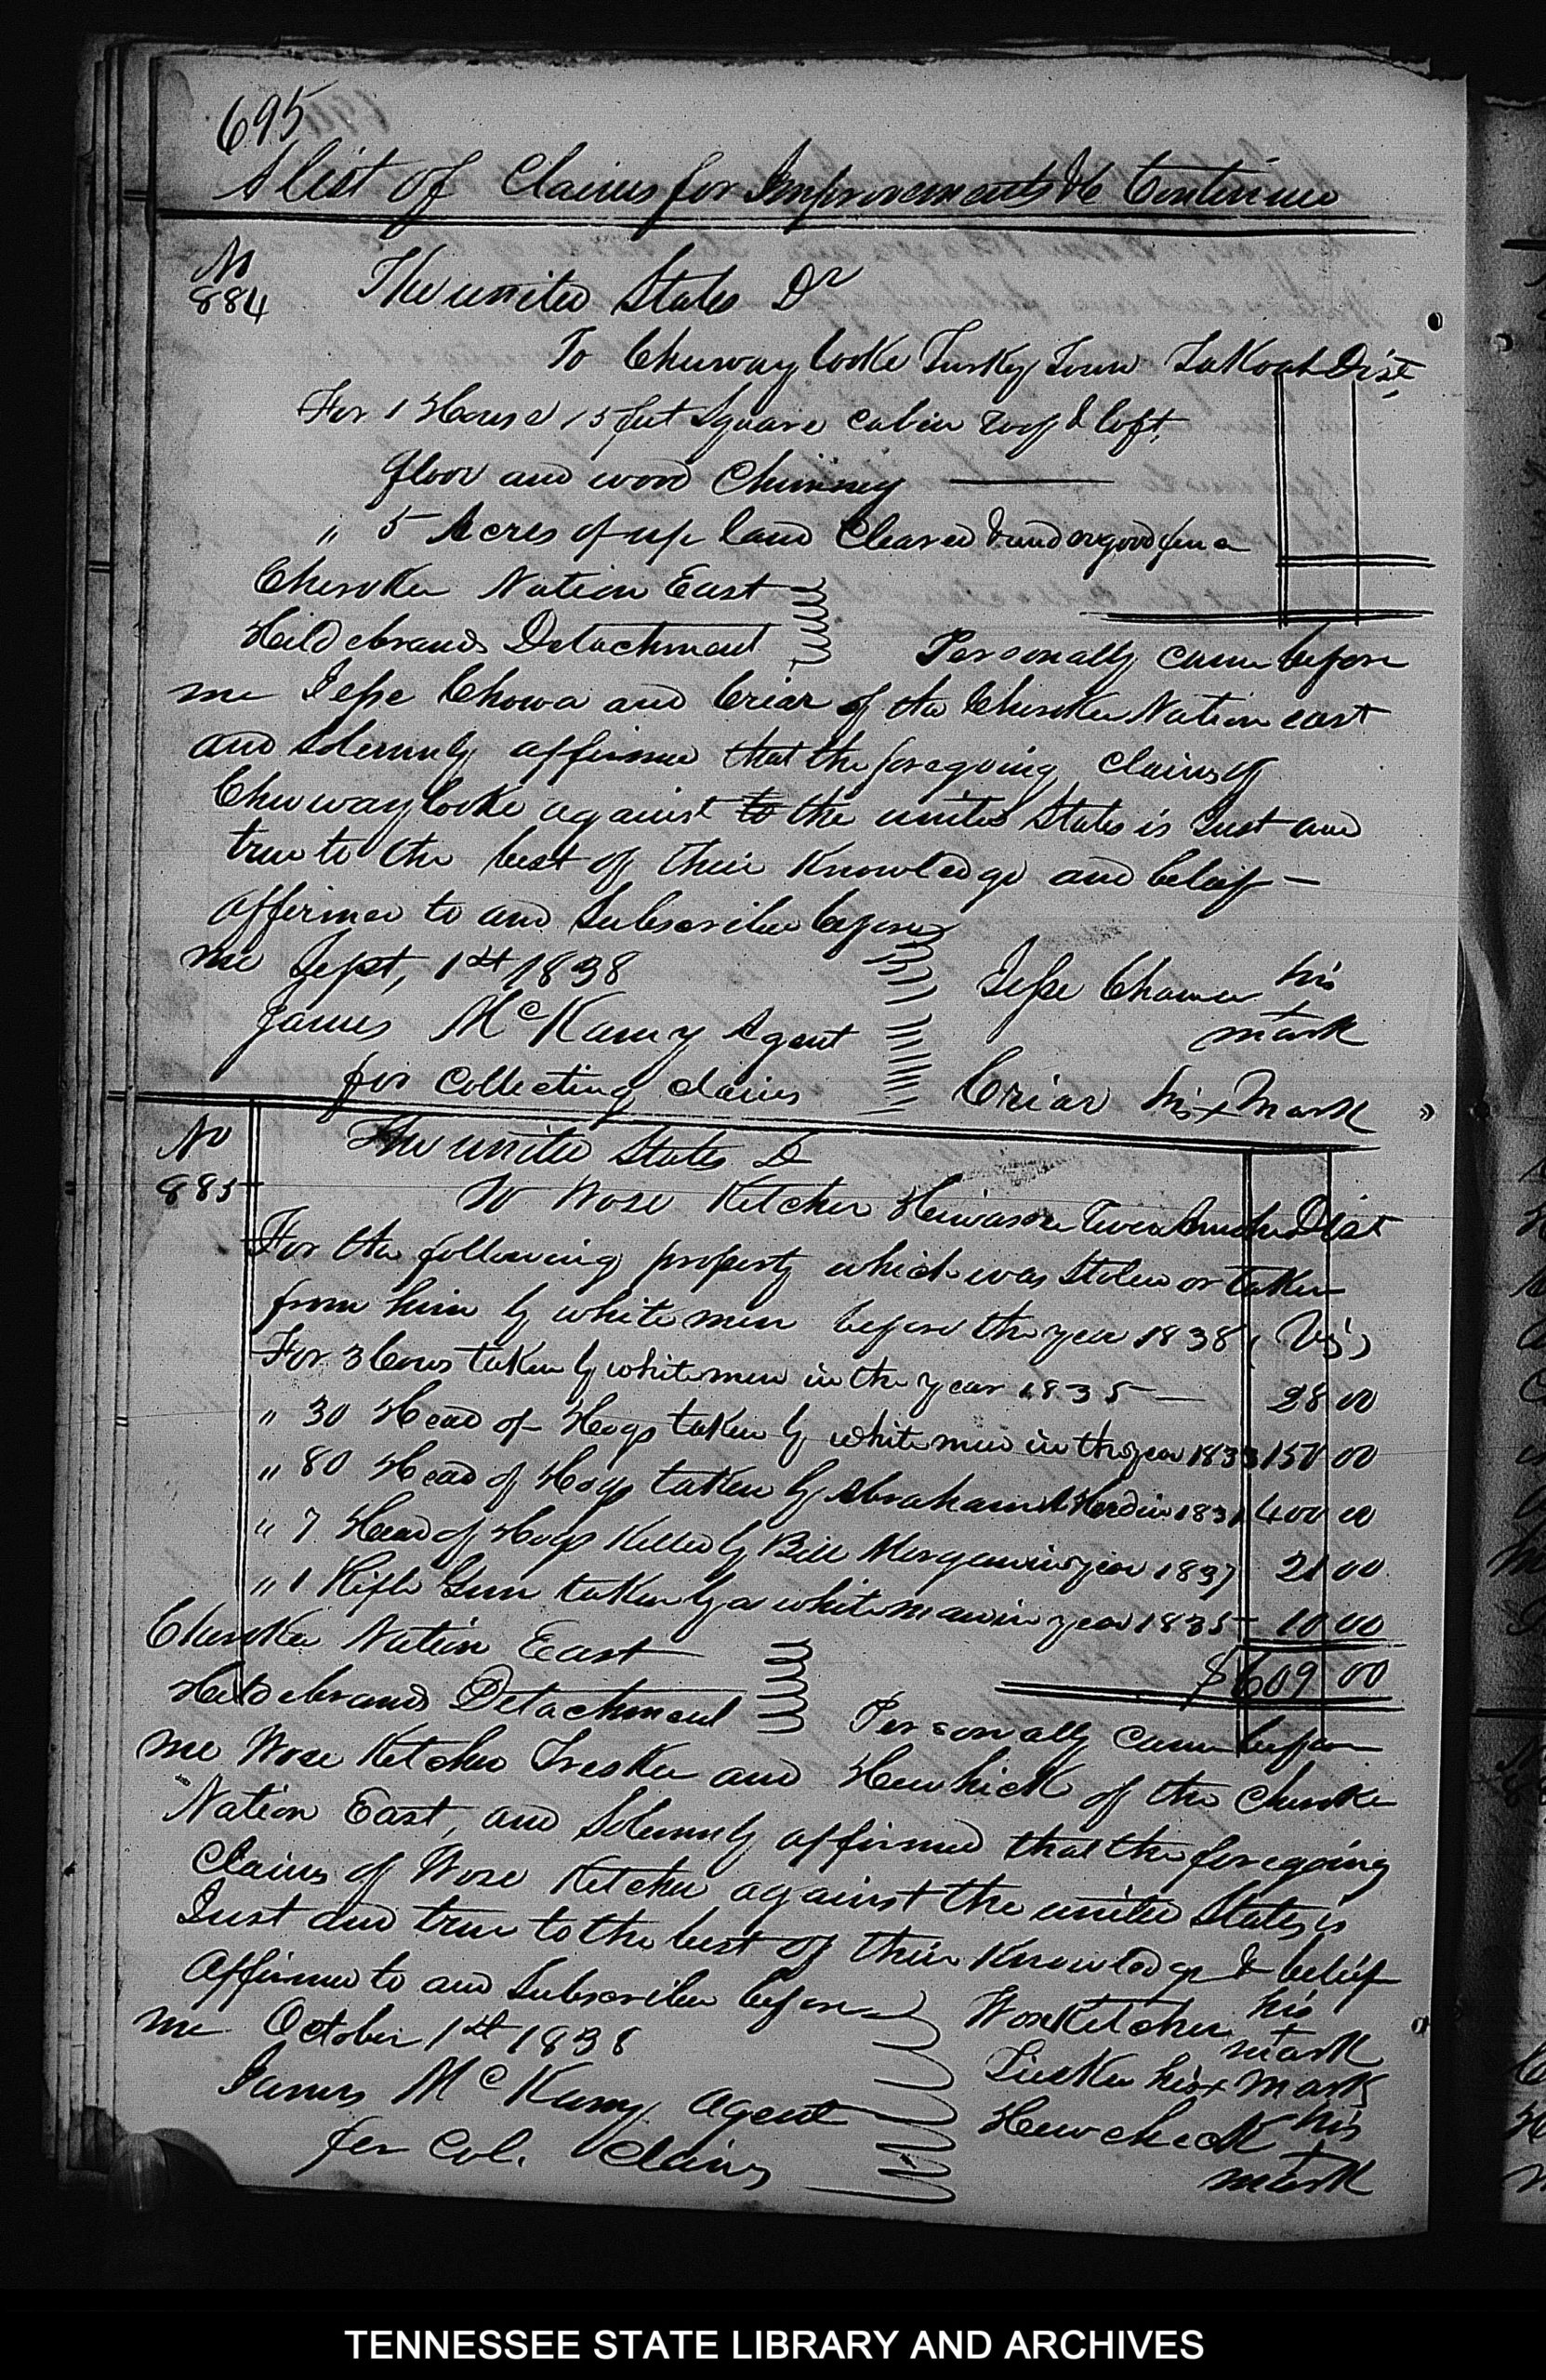 695
A list of Claims for Improvements &c Continued
No
884
The united States Dr
To Chuwaylooke Turkey Town Dist
For 1 House 15 feet Square Cabin roof & loft,
floor and wood Chimney
" 5 Acres of up land Cleared & under good fence
Cherokee Nation East
Hildebrands Detachment
Personally came before
me Jesse Chowa and Criar of the Cherokee Nation east
and Solemnly affirmed that the foregoing claims of
Chuwaylooke against to the united States is Just and
true to the best of their Knowledge and belief —
Affirmed to and Subscribed before
me Sept, 1st 1838
James McKamy Agent
for Collecting claims
Jesse Chowa his
+
mark
Criar his x mark
No
885
The united States D
To Wose Ketcher Hiwassee River Dist
For the following property which was Stolen or taken
from him by white men before the year 1838, Viz,
For 3 Cows taken by white men in the year 1835 — 28 00
" 30 Head of Hogs taken by white men in the year 1833 150 00
" 80 Head of Hogs taken by Abraham in 1831 400 00
" 7 Head of Hogs Killed by Bill Morgan in year 1837 21 00
" 1 Rifle Gun taken by a white man in year 1835 10 00
$609 00
Cherokee Nation East
Hildebrands Detachment
Personally came before
me Wose Ketcher and of the Cherokee
Nation East, and Solemnly affirmed that the foregoing
Claims of Wose Ketcher against the united States is
Just and true to the best of their Knowledge & belief
Affirmed to and Subscribed before
me October 1st 1838
James McKamy Agent
for Col. Claims
Wose Ketcher his
+
mark
his x mark
Hewcheck his
+
mark
TENNESSEE STATE LIBRARY AND ARCHIVES